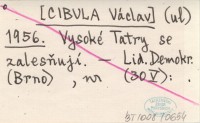 [CIBULA Václav] (ul)
1956. Vysoké Tatry se
zalesňují. — Lid. Demokr.
(Brno) , nr (30 V): .